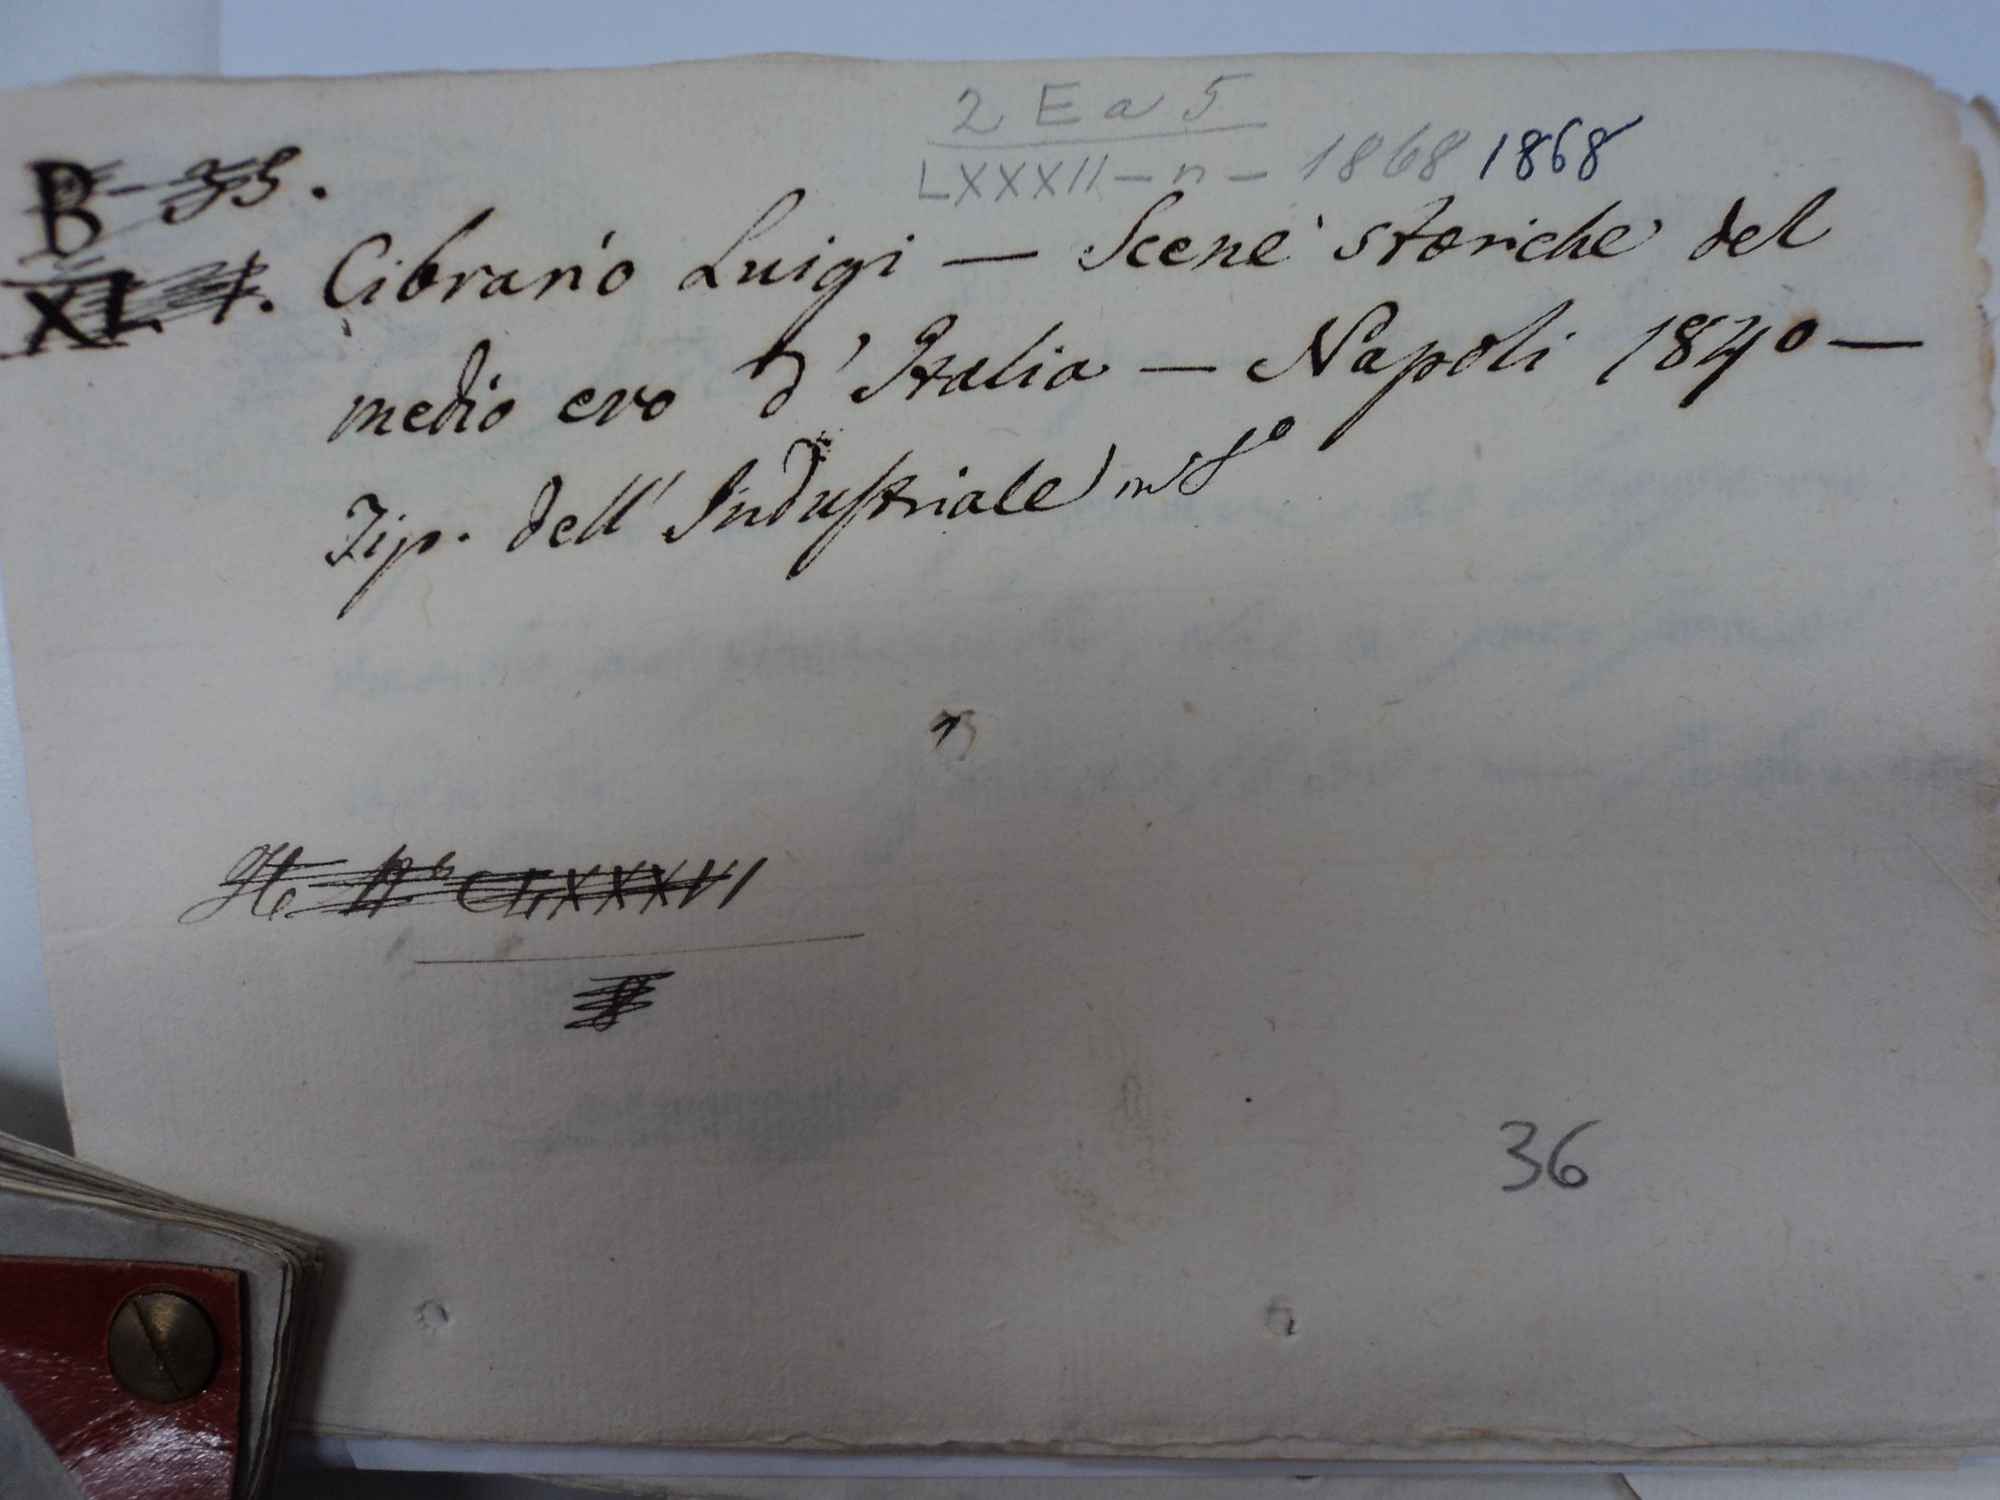 2 E a 5
LXXXII - n - 1868 1868
B - 35.
XL 7.
Cibrario Luigi — Scene storiche del
medio evo d'Italia — Napoli 1840 —
Tip. dell' Industriale in 8°
CLXXXVI
36